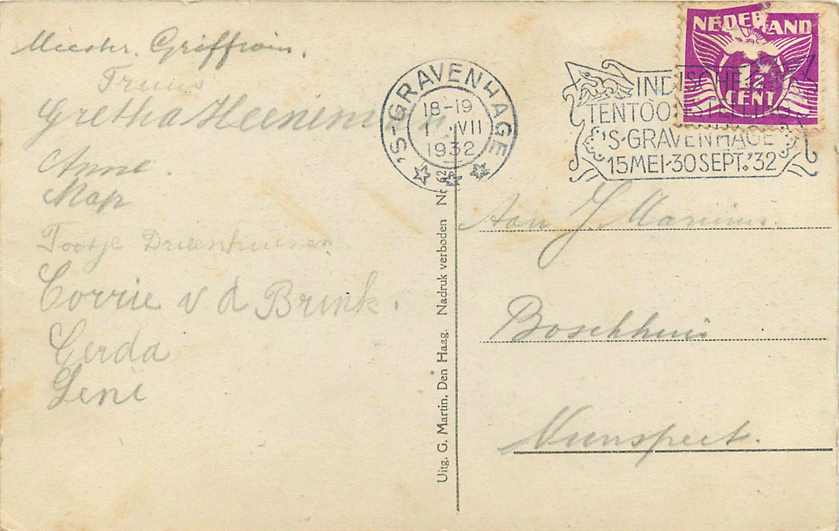 Meester. Griffioin.
Truus
Gretha Heenens
Anne.
Map
Tootje Driehuisen
Corrie v d Brink.
Gerda
Leni
'S-GRAVENHAGE
18-19
VII
1932
NEDERLAND
1½
CENT
INDISCHE
TENTOO
'S-GRAVENHAGE
15 MEI-30 SEPT. '32
Uitg. G. Martin, Den Haag. Nadruk verboden No 62
Aan J. Marinus.
Boschhuis
Nunspeet.